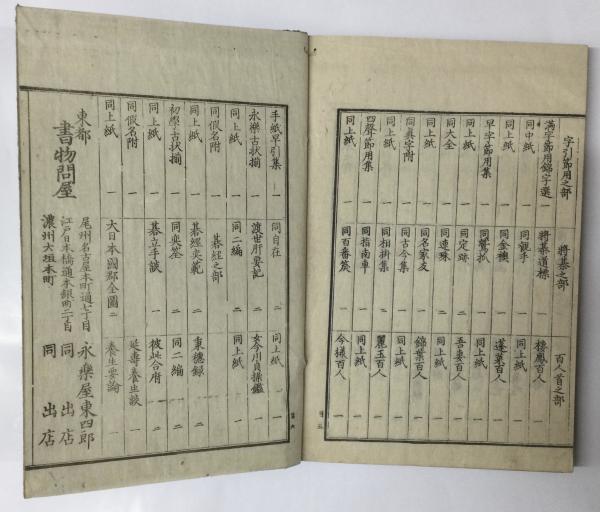 字引節用之部
満字節用錦字選 一
同中紙 一
同上紙 一
早字節用集 一
同上紙 一
同大全 一
同上紙 一
同真字附 一
同上紙 一
四聲節用集 一
同上紙 一
将棊之部
将棊道標
同觀手
同駒 一
同金襖 一
同定跡 二
同連珠 二
同名家友 一
同古今集 二
同相掛集 二
同指南車 二
同百番箴 一
百人首之部
棲鳳百人 一
同上紙 一
蓬莱百人 一
同上紙 一
吾妻百人 一
同上紙 一
錦葉百人 一
同上紙 一
麗玉百人 一
同上紙 一
今様百人 一
手紙早引集 一
永樂古状揃 一
同上紙 一
同假名附 一
同上紙 一
初學古状揃 一
同上紙 一
同假名附 一
同上紙 一
同自在 二
渡世肝要記 一
同二編 一
碁經之部
碁經奕範 二
同奕筌 二
碁立手談 一
大日本國郡全圖 二
同上紙 一
女今川貞操鑑 一
同上紙 一
東穂録 二
同二編 二
彼此合府 二
延壽養生談 一
養生要論 一
東都
書物問屋
尾州名古屋本町通七丁目 永樂屋東四郎
江戸日本橋通本銀町二丁目 同 出店
濃州大垣本町 同 出店